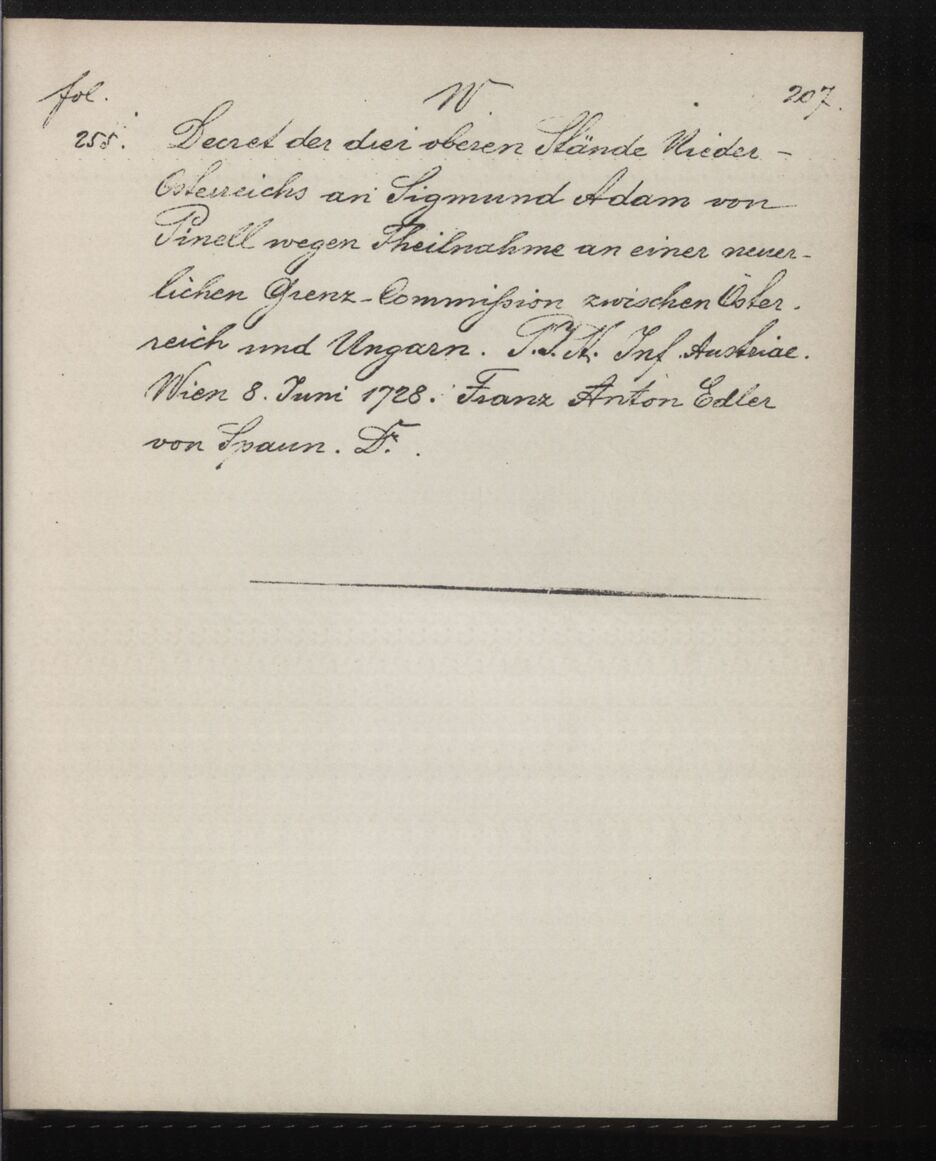 fol. W 207.
255. Decret der drei oberen Stände Nieder-
Österreichs an Sigmund Adam von
Pinell wegen Theilnahme an einer neuer-
lichen Grenz-Commißion zwischen Öster-
reich und Ungarn. Inf. Austriae.
Wien 8. Juni 1728. Franz Anton Edler
von Spaun. Dr.